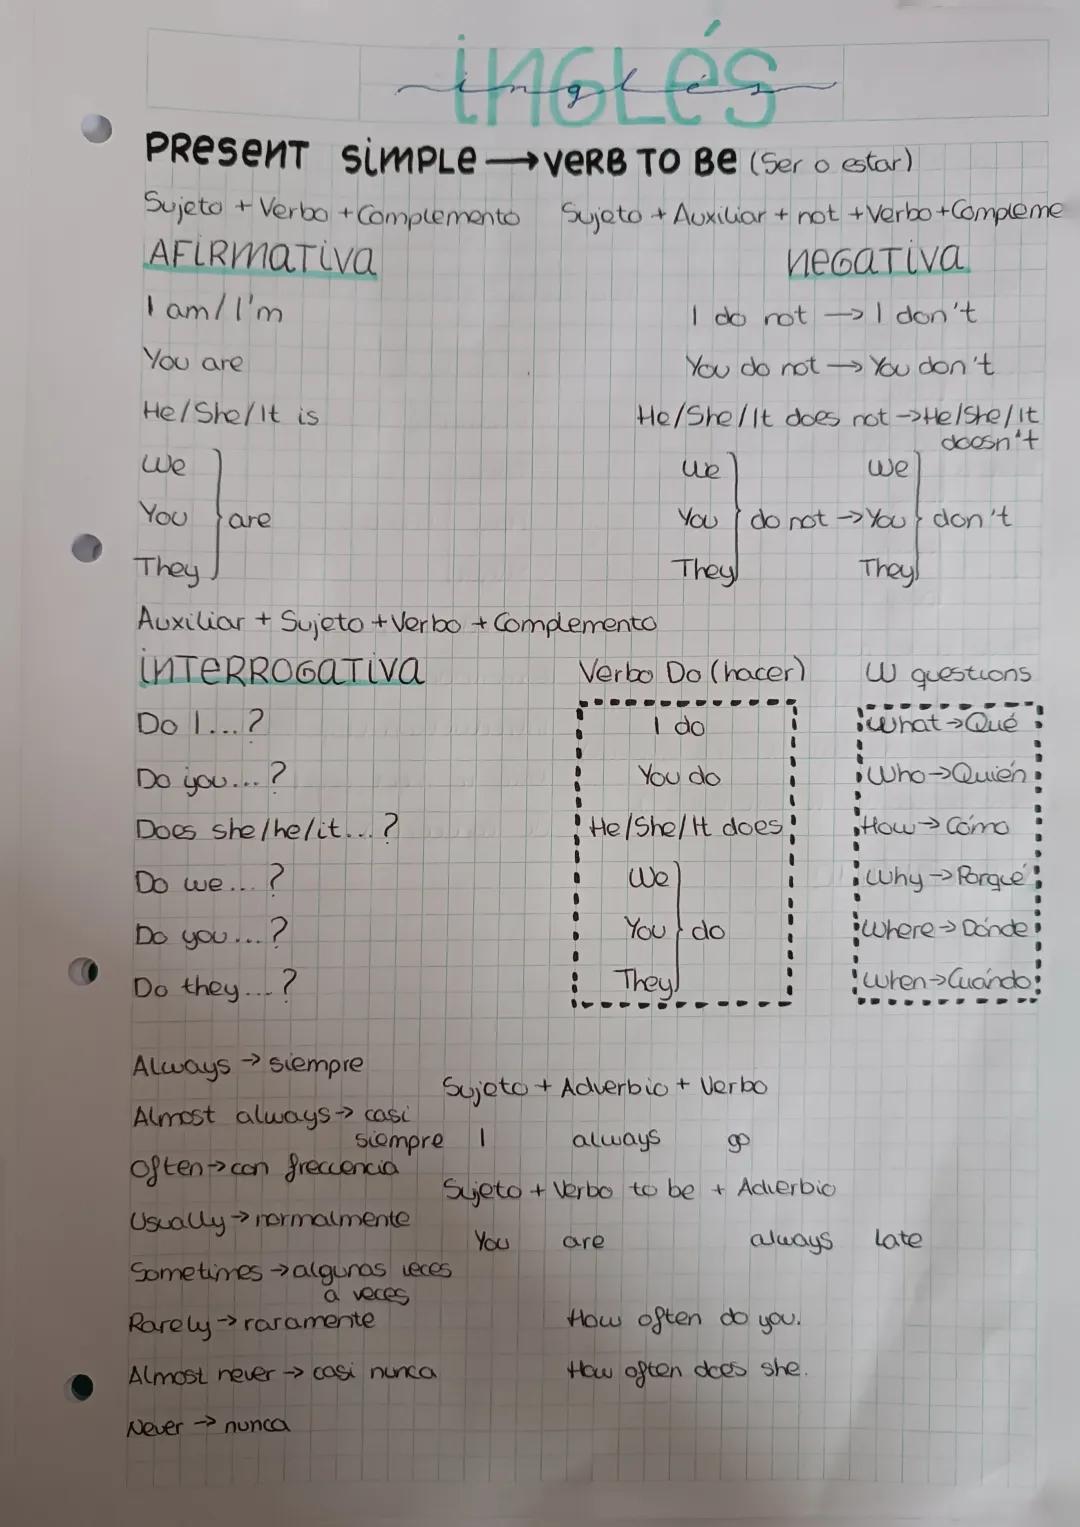 inglés
inglés
PRESENT SIMPLE → VERB TO BE (Ser o estar)
Sujeto + Verbo + Complemento Sujeto + Auxiliar + not + Verbo + Compleme
AFIRMATIVA NEGATIVA
I am/I'm I do not → I don't
You are You do not → You don't
He/She/It is He/She/It does not → He/She/It
doesn't
We We We
You are You do not → You don't
They They They
Auxiliar + Sujeto + Verbo + Complemento
INTERROGATIVA Verbo Do (hacer) W questions
Do I...? I do What → Qué
Do you...? You do Who → Quién
Does she/he/it...? He/She/It does How → Cómo
Do we...? We Why → Porqué
Do you...? You do Where → Dónde
Do they...? They When → Cuándo
Always → siempre
Sujeto + Adverbio + Verbo
Almost always → casi
siempre I always go
Often → con frecuencia
Sujeto + Verbo to be + Adverbio
Usually → normalmente
You are always late
Sometimes → algunas veces
a veces
Rarely → raramente How often do you.
Almost never → casi nunca How often does she.
Never → nunca